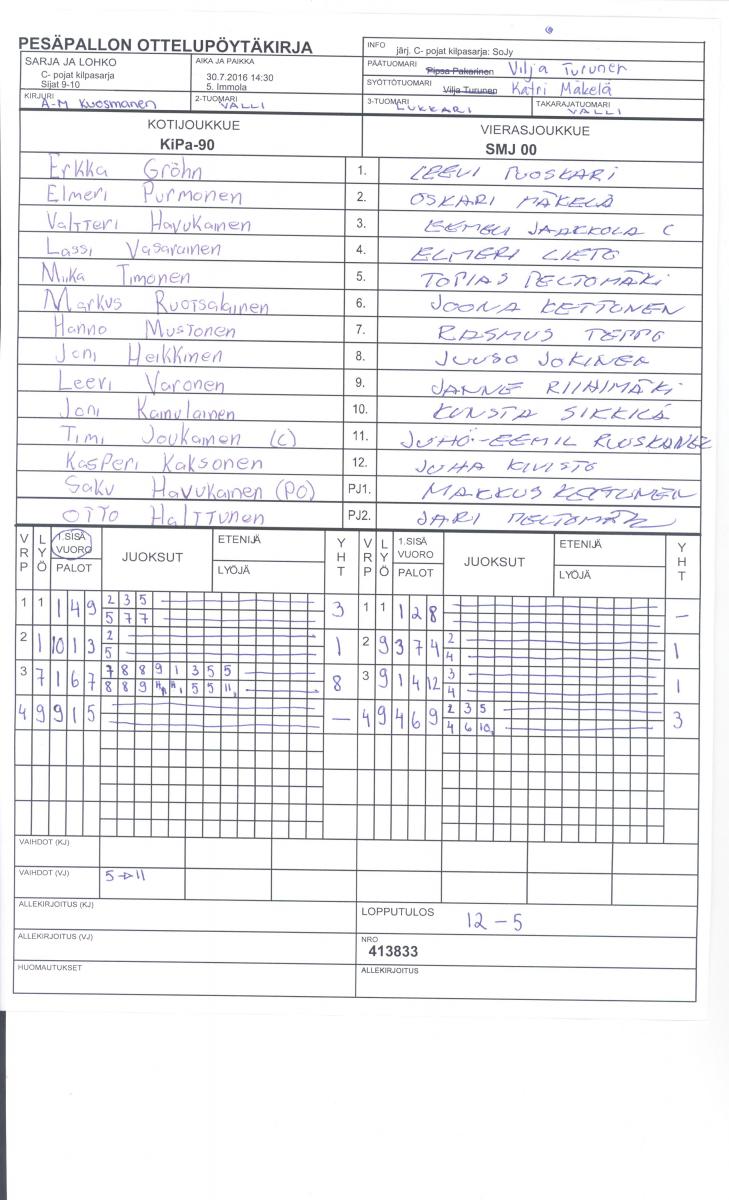 PESÄPALLON OTTELUPÖYTÄKIRJA
INFO järj. C- pojat kilpasarja: SoJy
SARJA JA LOHKO
C- pojat kilpasarja
Sijat 9-10
AIKA JA PAIKKA
30.7.2016 14:30
5. Immola
PÄÄTUOMARI Pipsa Pakarinen Vilja Turunen
SYÖTTÖTUOMARI Vilja Turunen Katri Mäkelä
KIRJURI A-M Kuosmanen
2-TUOMARI VALLI
3-TUOMARI LUKKARI
TAKARAJATUOMARI VALLI
KOTIJOUKKUE
KiPa-90
VIERASJOUKKUE
SMJ 00
Erkka Gröhn 1. LEEVI PUOSKARI
Elmeri Purmonen 2. OSKARI MÄKELÄ
Valtteri Havukainen 3. EEMELI JAAKKOLA C
Lassi Vasarainen 4. ELMERI LIETO
Miika Timonen 5. TOPIAS PELTOMÄKI
Markus Ruotsalainen 6. JOONA KETTUNEN
Hanno Mustonen 7. RASMUS TEPPO
Joni Heikkinen 8. JUUSO JOKINEN
Leevi Varonen 9. JANNE RIIHIMÄKI
Joni Kainulainen 10. KUNSTA SIKKILÄ
Timi Joukainen (C) 11. JUHO-EEMIL RUUSKANEN
Kasperi Kaksonen 12. JUHA KIVISTÖ
Saku Havukainen (PO) PJ1. MARKUS KETTUNEN
OTTO HALTTUNEN PJ2. JARI PELTOMÄKI
VRP LYÖ 1.SISÄ VUORO PALOT JUOKSUT ETENIJÄ LYÖJÄ YHT VRP LYÖ 1.SISÄ VUORO PALOT JUOKSUT ETENIJÄ LYÖJÄ YHT
1 1 1 4 9 2 3 5 3 1 1 1 2 8 –
5 7 7
2 1 10 1 3 2 1 2 9 3 7 4 2 1
5 4
3 7 1 6 7 7 8 8 9 1 3 5 5 8 3 9 1 4 12 3 1
8 8 9 5 5 11 4
4 9 9 1 5 – 4 9 4 6 9 2 3 5 3
4 6 10
VAIHDOT (KJ)
VAIHDOT (VJ) 5→11
ALLEKIRJOITUS (KJ)
LOPPUTULOS 12 – 5
ALLEKIRJOITUS (VJ)
NRO
413833
HUOMAUTUKSET
ALLEKIRJOITUS